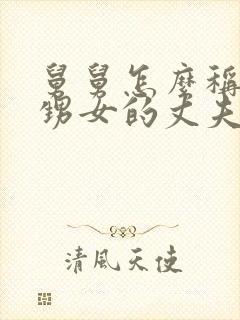 舅舅怎麼稱
甥女的丈夫
清風天使